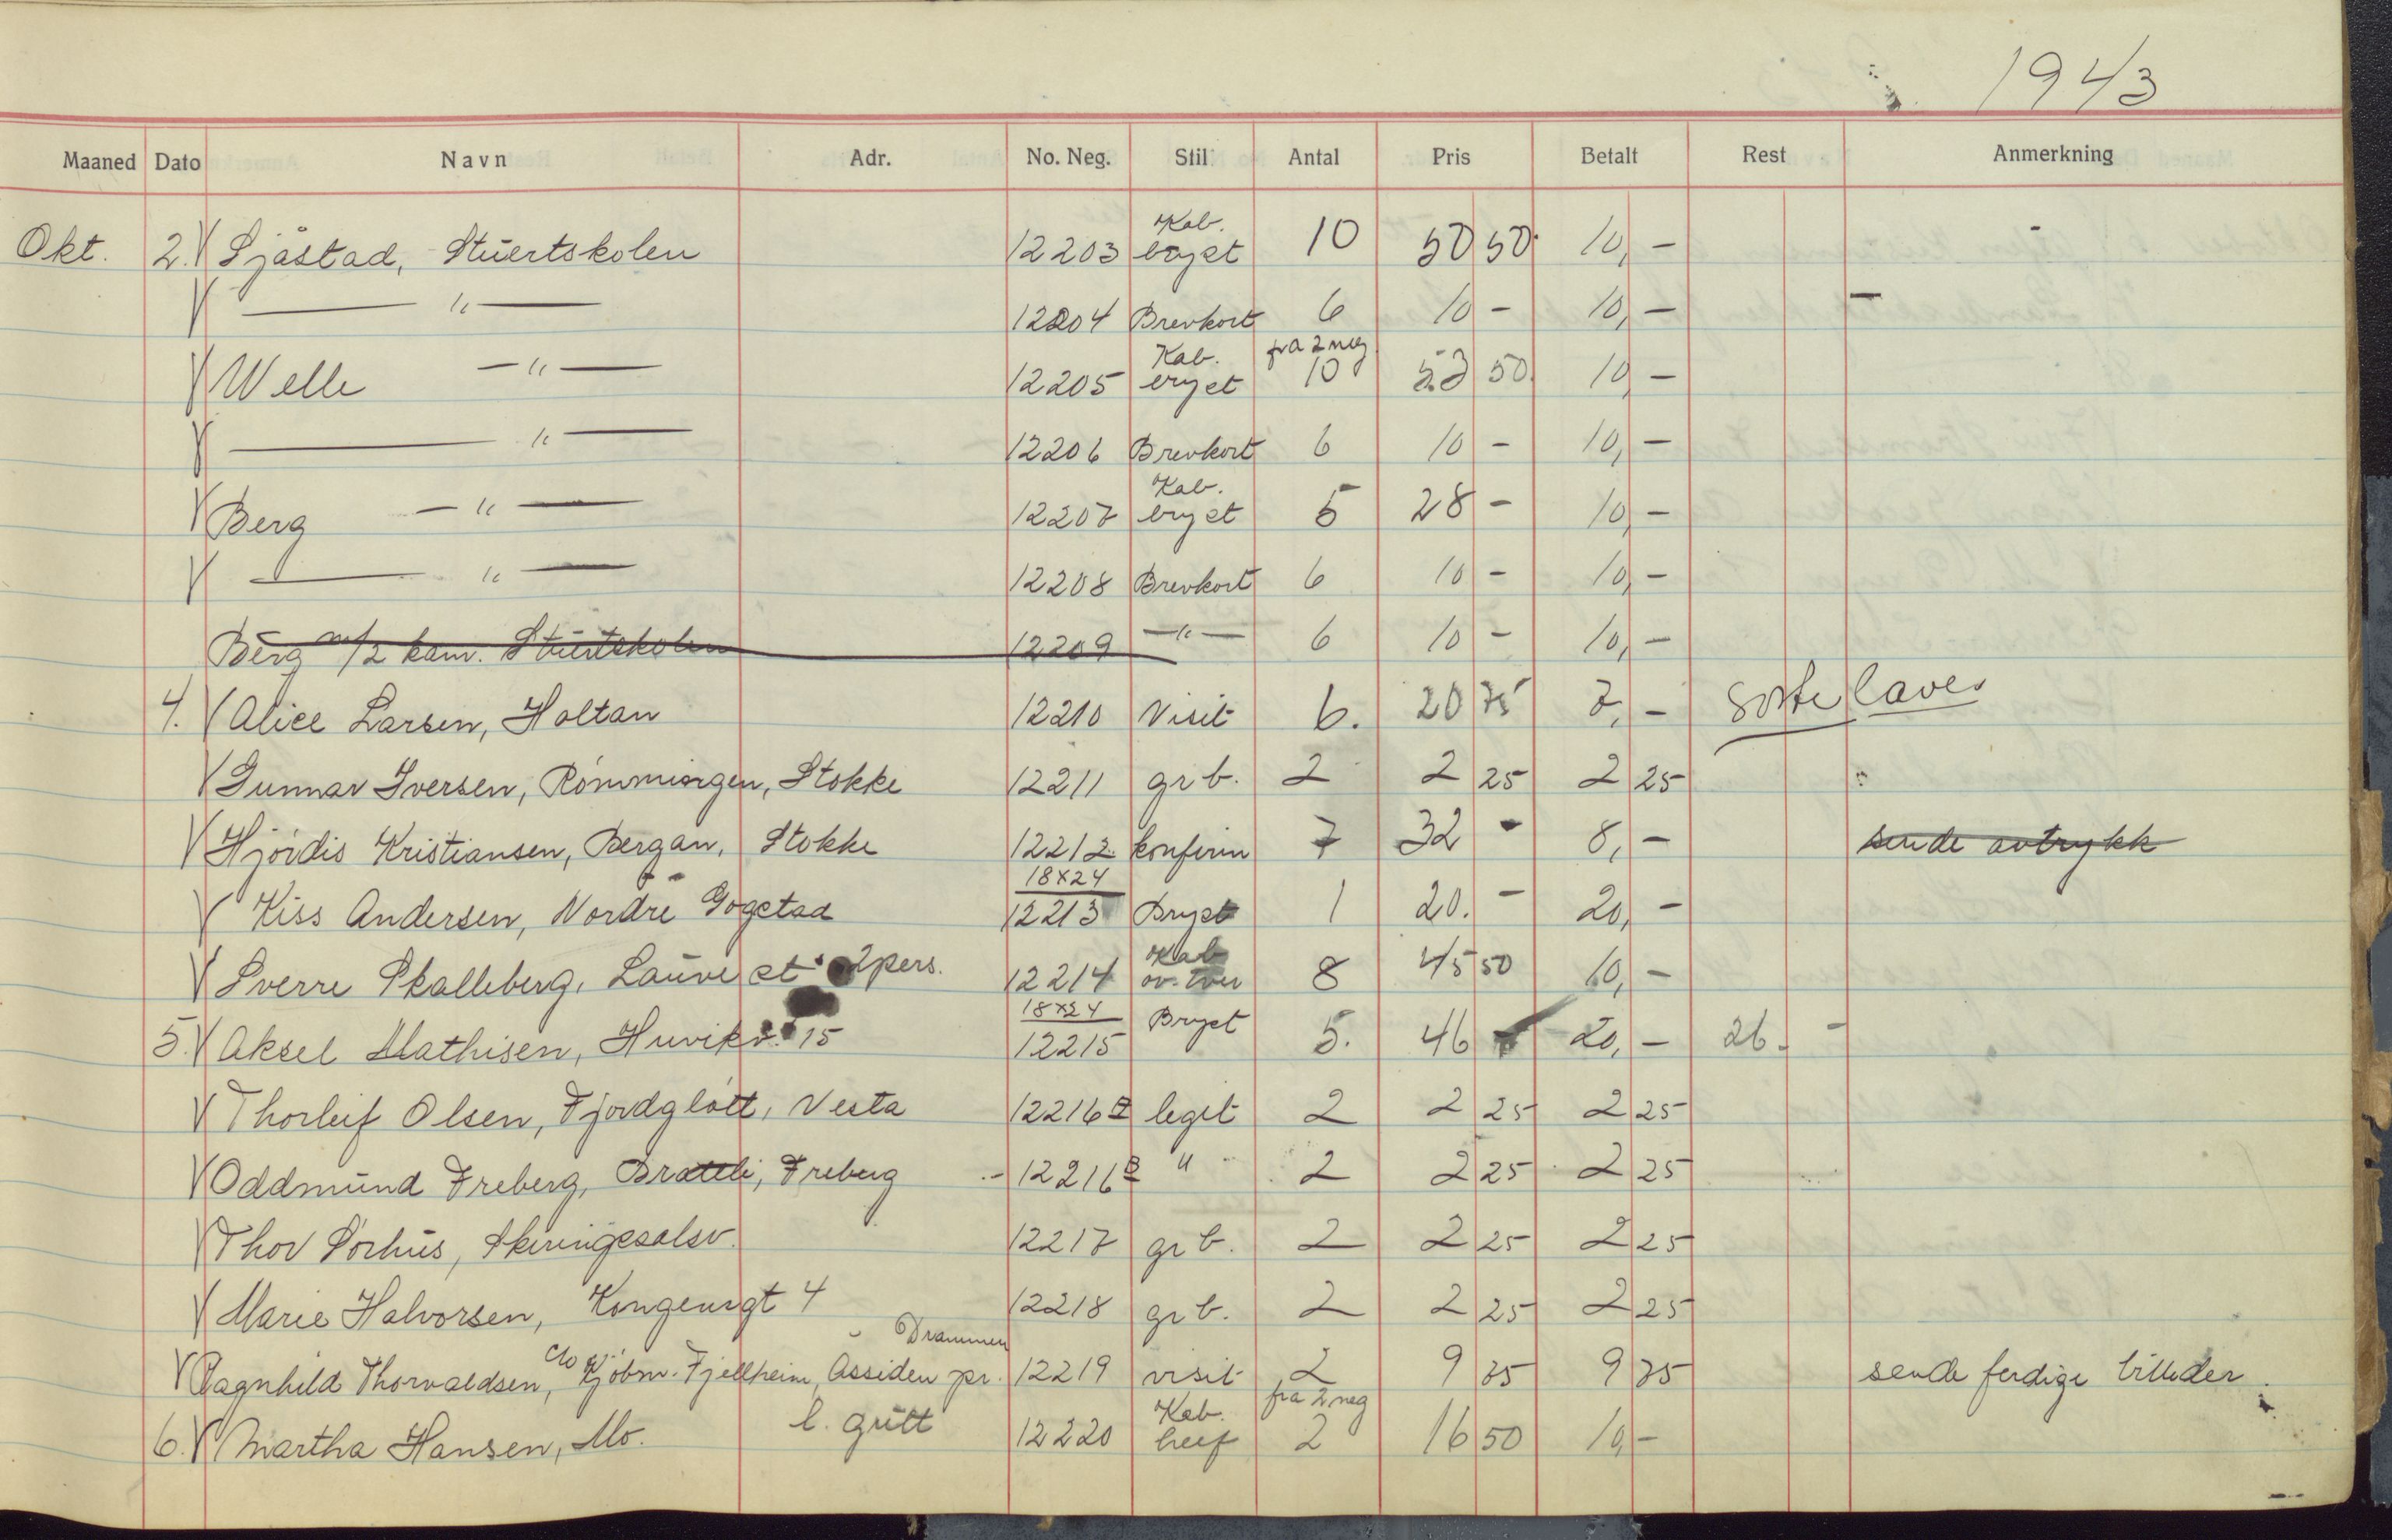 1943
Maaned Dato Navn Adr. No. Neg. Stil Antal Pris Betalt Rest Anmerkning
Okt. 2. Sjåstad, Stuertskolen 12203 Kab. bryst 10 50 50 10,-
— " — 12204 Brevkort 6 10 - 10,-
Welle — " — 12205 Kab. bryst fra 2 neg 10 53 50 10,-
— " — 12206 Brevkort 6 10 - 10,-
Berg — " — 12207 Kab. bryst 5 28 - 10,-
— " — 12208 Brevkort 6 10 - 10,-
Berg m/2 kam. Stuertskolen 12209 — " — 6 10 - 10,-
4. Alice Larsen, Holtan 12210 Visit 6. 20 75 7,- laves
Gunnar Iversen, Stokke 12211 gr b. 2 2 25 2 25
Hjørdis Kristiansen, Bergan, Stokke 12212 konfirm 7 32 - 8,- sende avtrykk
Kiss Andersen, Nordre Gogstad 18x24 12213 Bryst 1 20. - 20,-
Sverre Skalleberg, Lauve st 2 pers. 12214 Kab ov. tver 8 45 50 10,-
5. Aksel Mathisen, Huvikv. 15 18x24 12215 Bryst 5. 46 20,- 26. -
Thorleif Olsen, Fjordgløtt, Vesta 12216 legit 2 2 25 2 25
Oddmund Freberg, Bratteli, Freberg 12216 B " 2 2 25 2 25
Thor Sørhus, Skiringssalsv. 12217 gr b. 2 2 25 2 25
Marie Halvorsen, Kongensgt 4 12218 gr b. 2 2 25 2 25
Ragnhild Thorvaldsen, c/o Kjøbm. Fjellheim, Assiden pr. Drammen 12219 visit 2 9 75 9 75 sende ferdige billeder.
6. Martha Hansen, Mo. l. gutt 12220 Kab. heef fra 2 neg 2 16 50 10,-